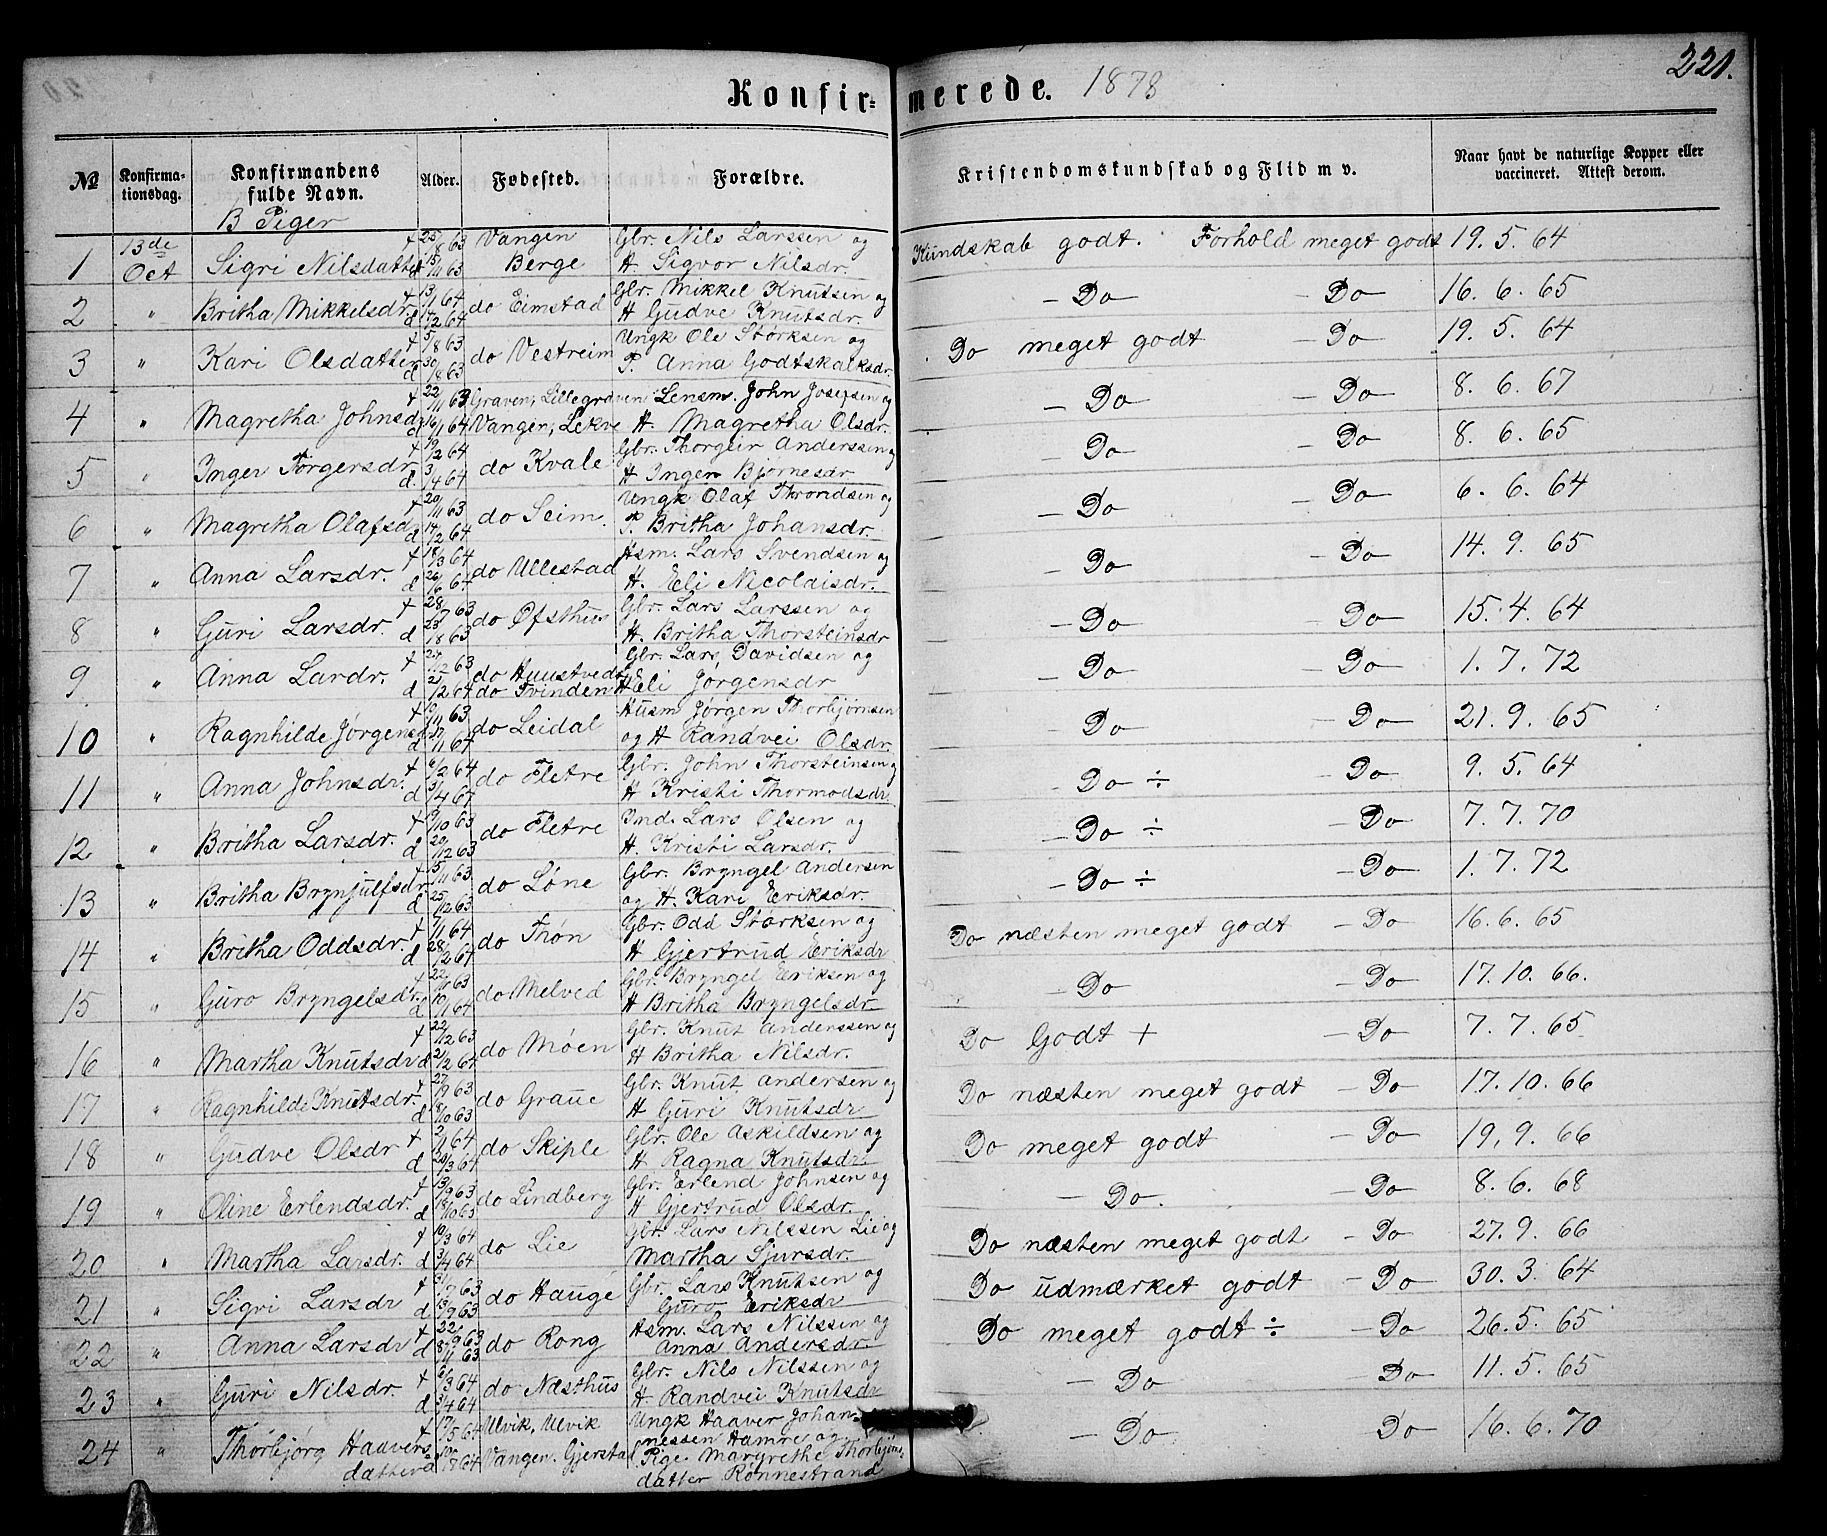 221.
Konfir- merede. 1878
№ Konfirma-tionsdag. Konfirmandens fulde Navn. Alder. Fødested. Forældre. Kristendomskundskab og Flid m v. Naar havt de naturlige Kopper eller vaccineret. Attest derom.
B Piger
1 13de Oct Sigri Nilsdatter Vangen Berge Gbr. Nils Larssen og H. Sigvor Nilsdr. Kundskab godt. Forhold meget godt 19. 5. 64
2 " Britha Mikkelsdr. do Eimstad Gbr. Mikkel Knutsen og H Gudve Knutsdr. - Do - Do 16. 6. 65
3 " Kari Olsdatter do Vestreim Ungk Ole Størksen og P. Anna Godtskalksdr. Do meget godt - Do 19. 5. 64
4 " Magretha Johnsdr Graven, Lillegraven Vangen, Lekve Lensm. John Josefsen og H. Magretha Olsdr. - Do - Do 8. 6. 67
5 " Inger Torgersdr. do Kvale Gbr. Thorgeir Anderssen og H Inger Bjørnesdr - Do - Do 8. 6. 65
6 " Magretha Olafsdr do Seim. Ungk Olaf Throndsen og P. Britha Johansdr. - Do - Do 6. 6. 64
7 " Anna Larsdr. do Ullestad Hsm. Lars Svendsen og H. Eli Nicolaisdr. - Do - Do 14. 9. 65
8 " Guri Larsdr. do Ofsthus Gbr. Lars Larssen og H. Britha Thorsteinsdr - Do Do 15. 4. 64
9. " Anna Lardr. do Huustvedt do Tvinden Gbr. Lars Davidsen og H Eli Jørgensdr - Do Do 1. 7. 72
10 " Ragnhilde Jørgensd do Leidal Husm Jørgen Thorbjørnsen og H Randvei Olsdr. Do - Do 21. 9. 65
11 " Anna Johnsdr. do Fletre Gbr. John Thorsteinsen og H Kristi Thormodsdr. - Do ÷ - Do 9. 5. 64
12 " Britha Larsdr. do Fletre Ind. Lars Olsen og H. Kristi Larsdr. - Do ÷ - Do 7. 7. 70
13 " Britha Brynjulfsdr do Løne Gbr. Bryngel Andersen og H. Kari Eriksdr. - Do ÷ - Do 1. 7. 72
14 " Britha Oddsdr. do Thøn Gbr. Odd Størksen og H Gjertrud Eriksdr Do næsten meget godt - Do 16. 6. 65
15 " Guro Bryngelsdr. do Melved Gbr. Bryngel Eriksen og H Britha Bryngelsdr - Do - Do 17. 10. 66.
16 " Martha Knutsdr do Møen Gbr. Knut Anderssen og H Britha Nilsdr. Do Godt + - Do 7. 7. 65
17 " Ragnhilde Knutsdr. do Graue Gbr. Knut Andersen og H Guri Knutsdr Do næsten meget godt - Do 17. 10. 66
18 " Gudve Olsdr do Skiple Gbr. Ole Askildsen og H Ragna Knutsdr. Do meget godt - Do 19. 9. 66
19 " Oline Erlendsdr. do Lindberg Gbr. Erlend Johnsen og H Gjertrud Olsdr. - Do. - Do 8. 6. 68
20 " Martha Larsdr. do Lie Gbr. Lars Nilssen Lie og Martha Sjursdr. Do næsten meget godt - Do 27. 9. 66
21 " Sigri Larsdr do Hauge Gbr. Lars Knutsen og Guro Eriksdr Do udmærket godt - Do 30. 3. 64
22 " Anna Larsdr do Rong Hsm. Lars Nilssen og Anna Andersdr. Do meget godt ÷ - Do 26. 5. 65
23 " Guri Nilsdr. do Næsthus Gbr. Nils Nilssen og H. Randvei Knutsdr - Do Do 11. 5. 65
24 " Thorbjørg Haavers datter Ulvik, Ulvik Vangen. Gjerstad Ungk Haaver Johan- nessen Hamre og Pige Margrethe Thorbjøns datter Rønnestrand - Do. Do 16. 6. 70